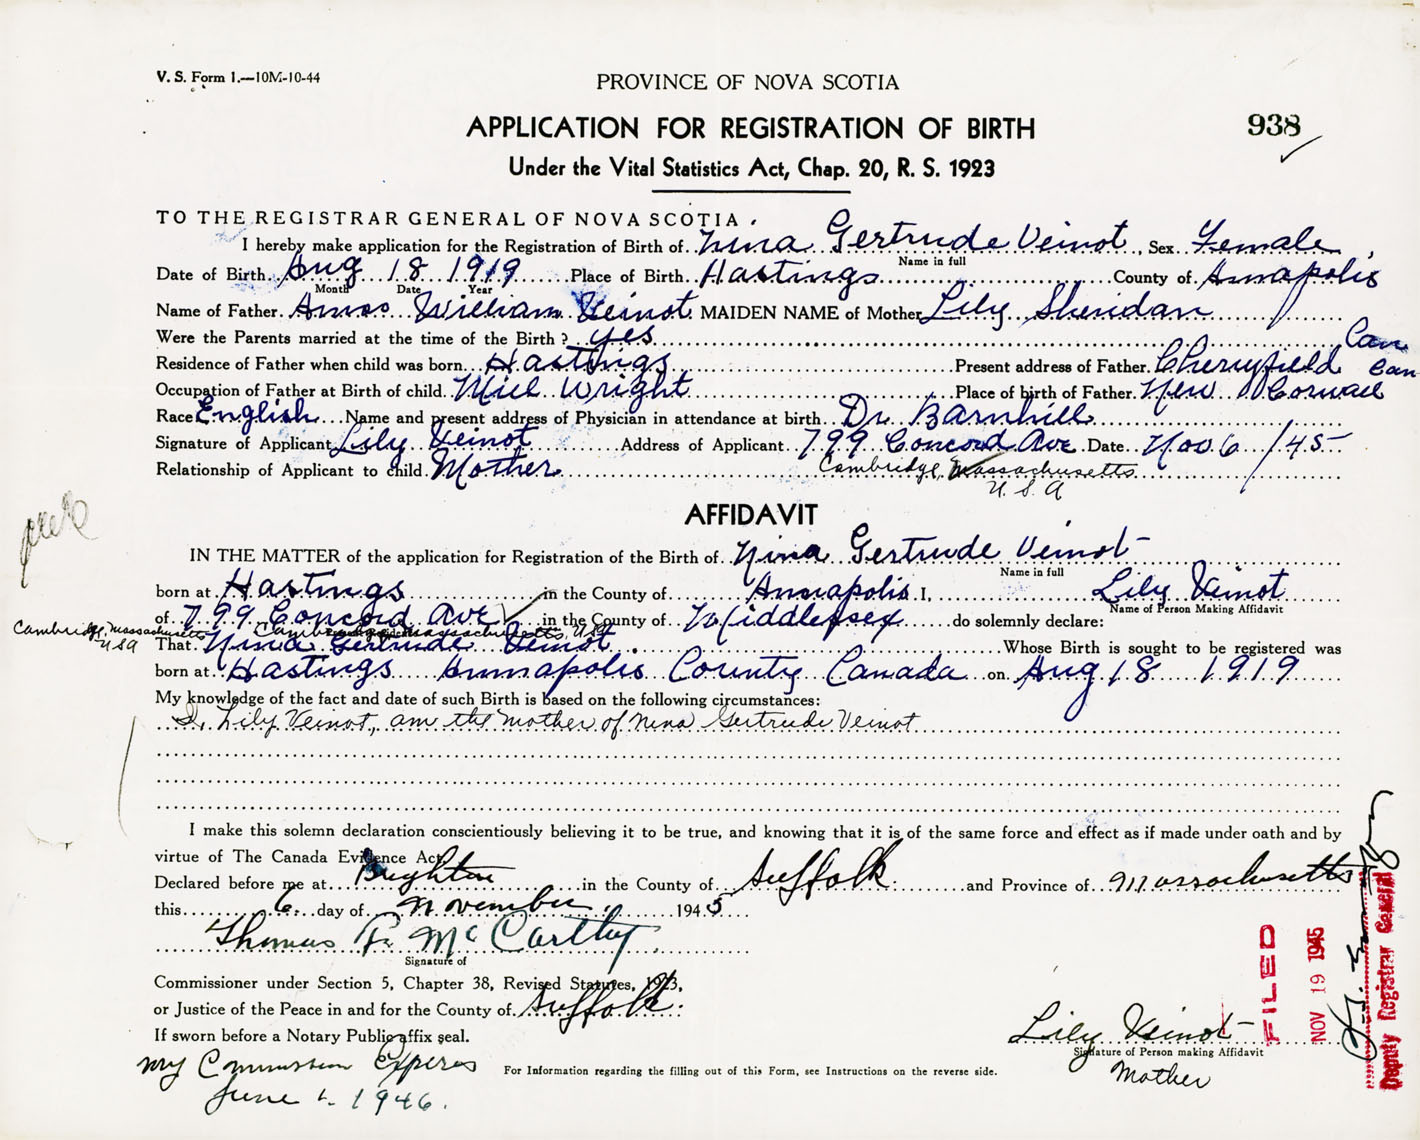 V. S. Form 1.—10M-10-44
PROVINCE OF NOVA SCOTIA
APPLICATION FOR REGISTRATION OF BIRTH
938
Under the Vital Statistics Act, Chap. 20, R. S. 1923
TO THE REGISTRAR GENERAL OF NOVA SCOTIA
I hereby make application for the Registration of Birth of Nina Gertrude Veinot, Sex Female
Name in full
Date of Birth Aug 18 1919 Place of Birth Hastings County of Annapolis
Month Date Year
Name of Father Amos William Veinot MAIDEN NAME of Mother Lily Sheridan
Were the Parents married at the time of the Birth? yes
Residence of Father when child was born Hastings Present address of Father Cherryfield Can
Occupation of Father at Birth of child Mill Wright Place of birth of Father New Cornwall Can
Race English Name and present address of Physician in attendance at birth Dr Barnhill
Signature of Applicant Lily Veinot Address of Applicant 799 Concord Ave Date Nov 6/45
Relationship of Applicant to child Mother Cambridge, Massachusetts
U. S. A
AFFIDAVIT
IN THE MATTER of the application for Registration of the Birth of Nina Gertrude Veinot
Name in full
born at Hastings in the County of Annapolis I, Lily Veinot
Name of Person Making Affidavit
of 799 Concord Ave in the County of Middlesex do solemnly declare:
Cambridge, Massachusetts USA Cambridge Massachusetts, USA
That Nina Gertrude Veinot Whose Birth is sought to be registered was
born at Hastings Annapolis County Canada on Aug 18 1919
My knowledge of the fact and date of such Birth is based on the following circumstances:
I, Lily Veinot, am the mother of Nina Gertrude Veinot
I make this solemn declaration conscientiously believing it to be true, and knowing that it is of the same force and effect as if made under oath and by
virtue of The Canada Evidence Act.
Declared before me at Brighton in the County of Suffolk and Province of Massachusetts
this 6 day of November 1945
Thomas F. McCarthy
Signature of
Commissioner under Section 5, Chapter 38, Revised Statutes, 1923,
or Justice of the Peace in and for the County of Suffolk
If sworn before a Notary Public affix seal.
My Commission Expires
June 1, 1946.
For Information regarding the filling out of this Form, see Instructions on the reverse side.
Lily Veinot
Signature of Person making Affidavit
Mother
FILED
NOV 19 1945
Deputy Registrar General